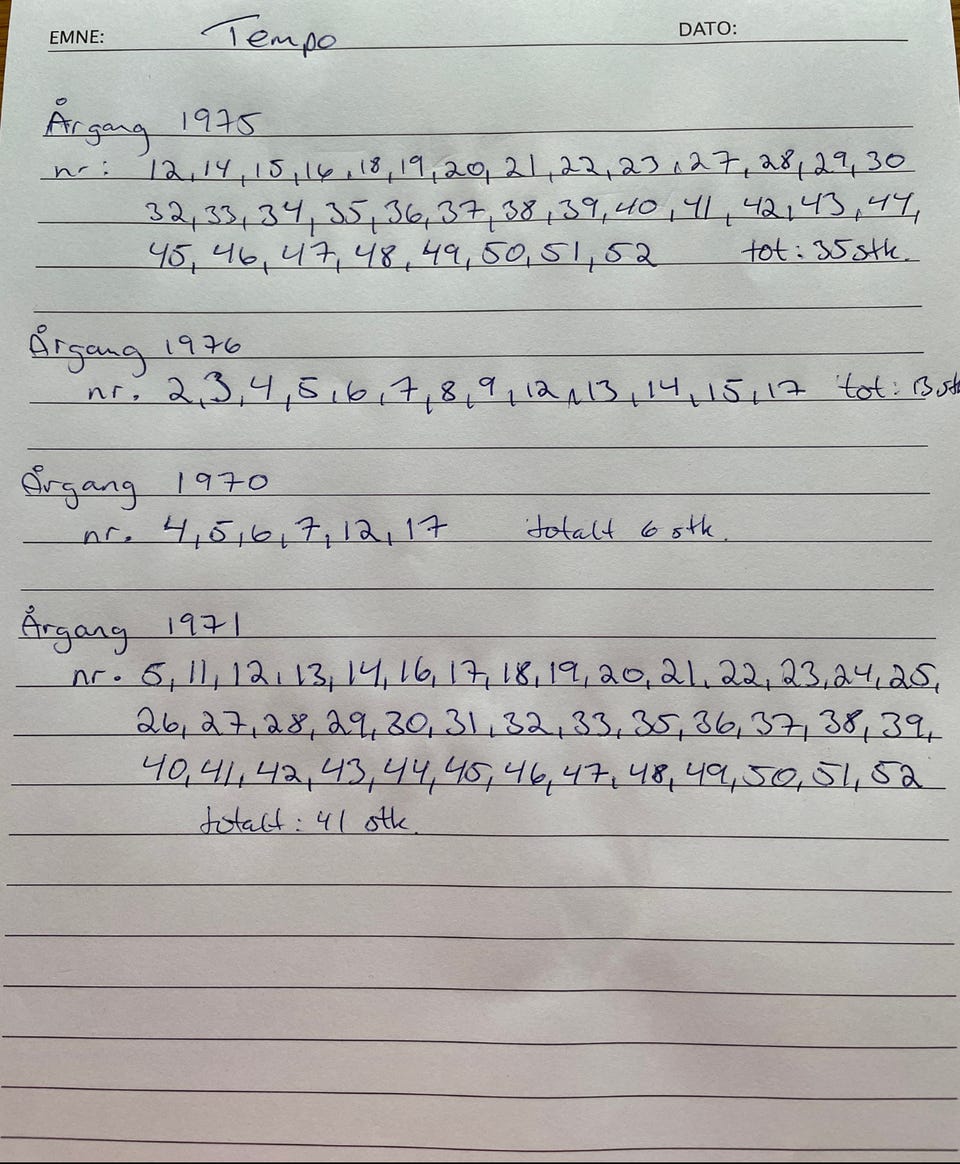 EMNE: Tempo DATO:
Årgang 1975
nr: 12, 14, 15, 16, 18, 19, 20, 21, 22, 23, 27, 28, 29, 30
32, 33, 34, 35, 36, 37, 38, 39, 40, 41, 42, 43, 44,
45, 46, 47, 48, 49, 50, 51, 52 tot: 35 stk.
Årgang 1976
nr. 2, 3, 4, 5, 6, 7, 8, 9, 12, 13, 14, 15, 17 tot: 13 stk
Årgang 1970
nr. 4, 5, 6, 7, 12, 17 totalt 6 stk.
Årgang 1971
nr. 5, 11, 12, 13, 14, 16, 17, 18, 19, 20, 21, 22, 23, 24, 25,
26, 27, 28, 29, 30, 31, 32, 33, 35, 36, 37, 38, 39,
40, 41, 42, 43, 44, 45, 46, 47, 48, 49, 50, 51, 52
totalt: 41 stk.